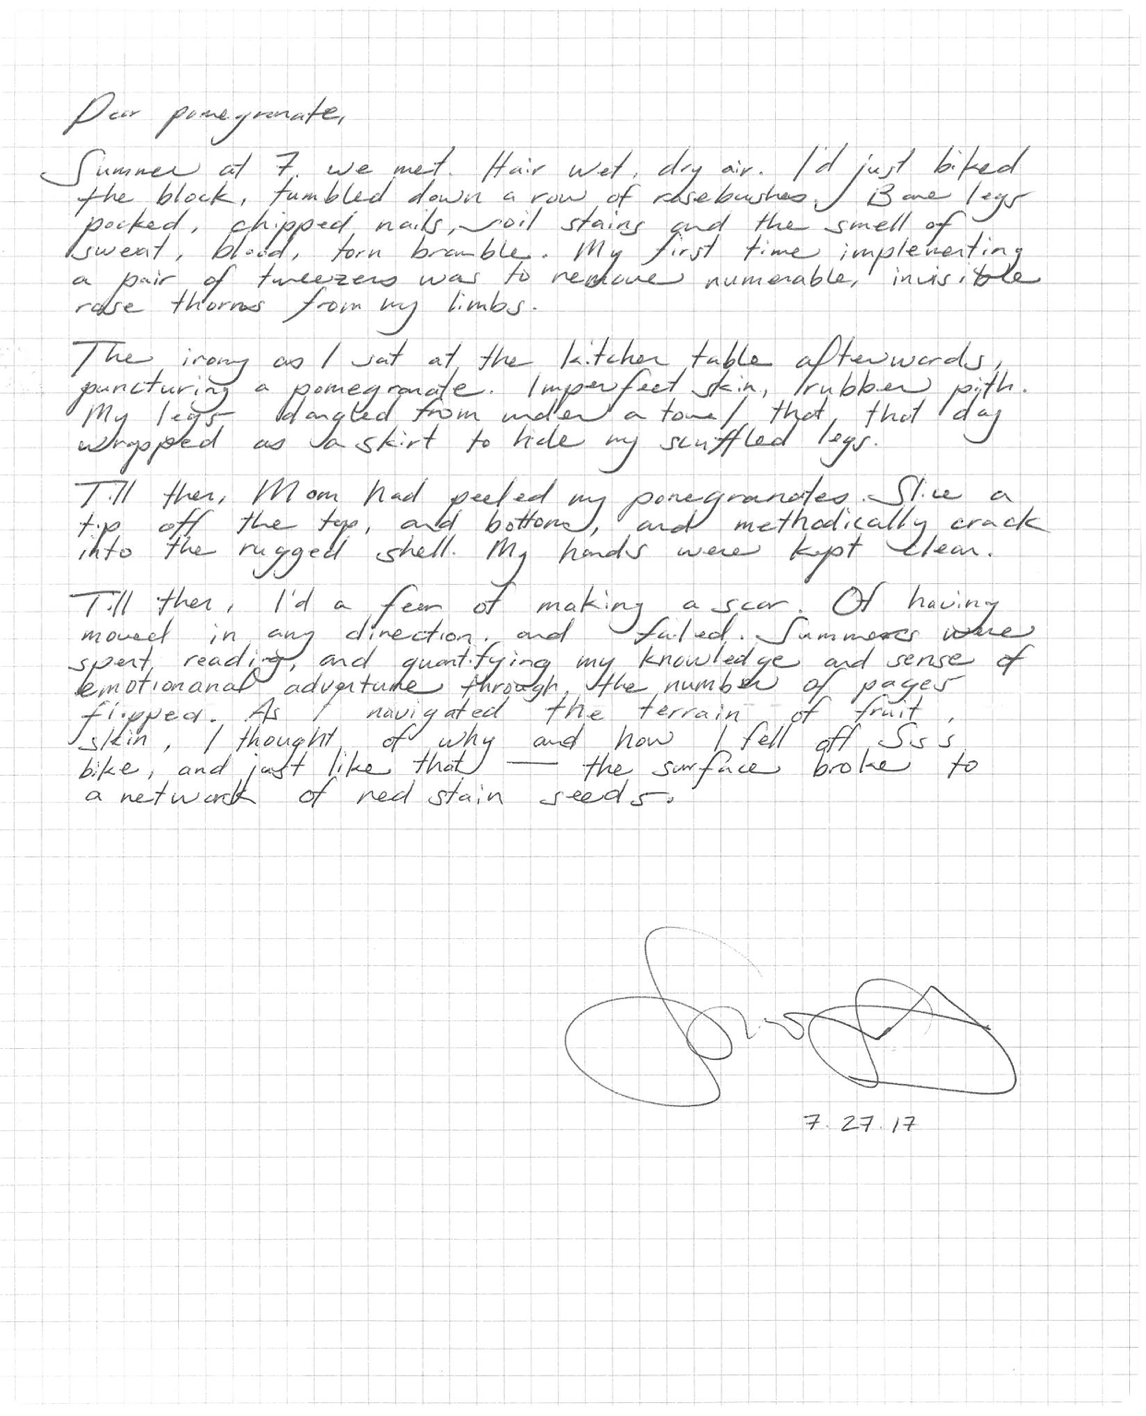 Dear pomegranate,
Summer at 7, we met. Hair wet, dry air. I'd just biked
the block, tumbled down a row of rosebushes. Bare legs
pocked, chipped nails, soil stains and the smell of
sweat, blood, torn bramble. My first time implementing
a pair of tweezers was to remove numerable, invisible
rose thorns from my limbs.
The irony as I sat at the kitchen table afterwards,
puncturing a pomegranate. Imperfect skin, rubber pith.
My legs dangled from under a towel that, that day
wrapped as a skirt to hide my scuffled legs.
Till then, Mom had peeled my pomegranates. Slice a
tip off the top, and bottom, and methodically crack
into the rugged shell. My hands were kept clean.
Till then, I'd a fear of making a scar. Of having
moved in any direction, and failed. Summers were
spent reading, and quantifying my knowledge and sense of
emotionanal adventure through the number of pages
flipped. As I navigated the terrain of fruit,
skin, I thought of why and how I fell off Sis's
bike, and just like that — the surface broke to
a network of red stain seeds.
7.27.17